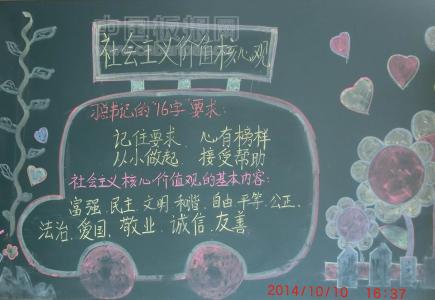 中国板报网
社会主义价值核心观
习总书记的"16字"要求:
记住要求、心有榜样
从小做起、接受帮助
社会主义核心价值观的基本内容:
富强、民主、文明、和谐、自由、平等、公正、
法治、爱国、敬业、诚信、友善
2014/10/10 16:37